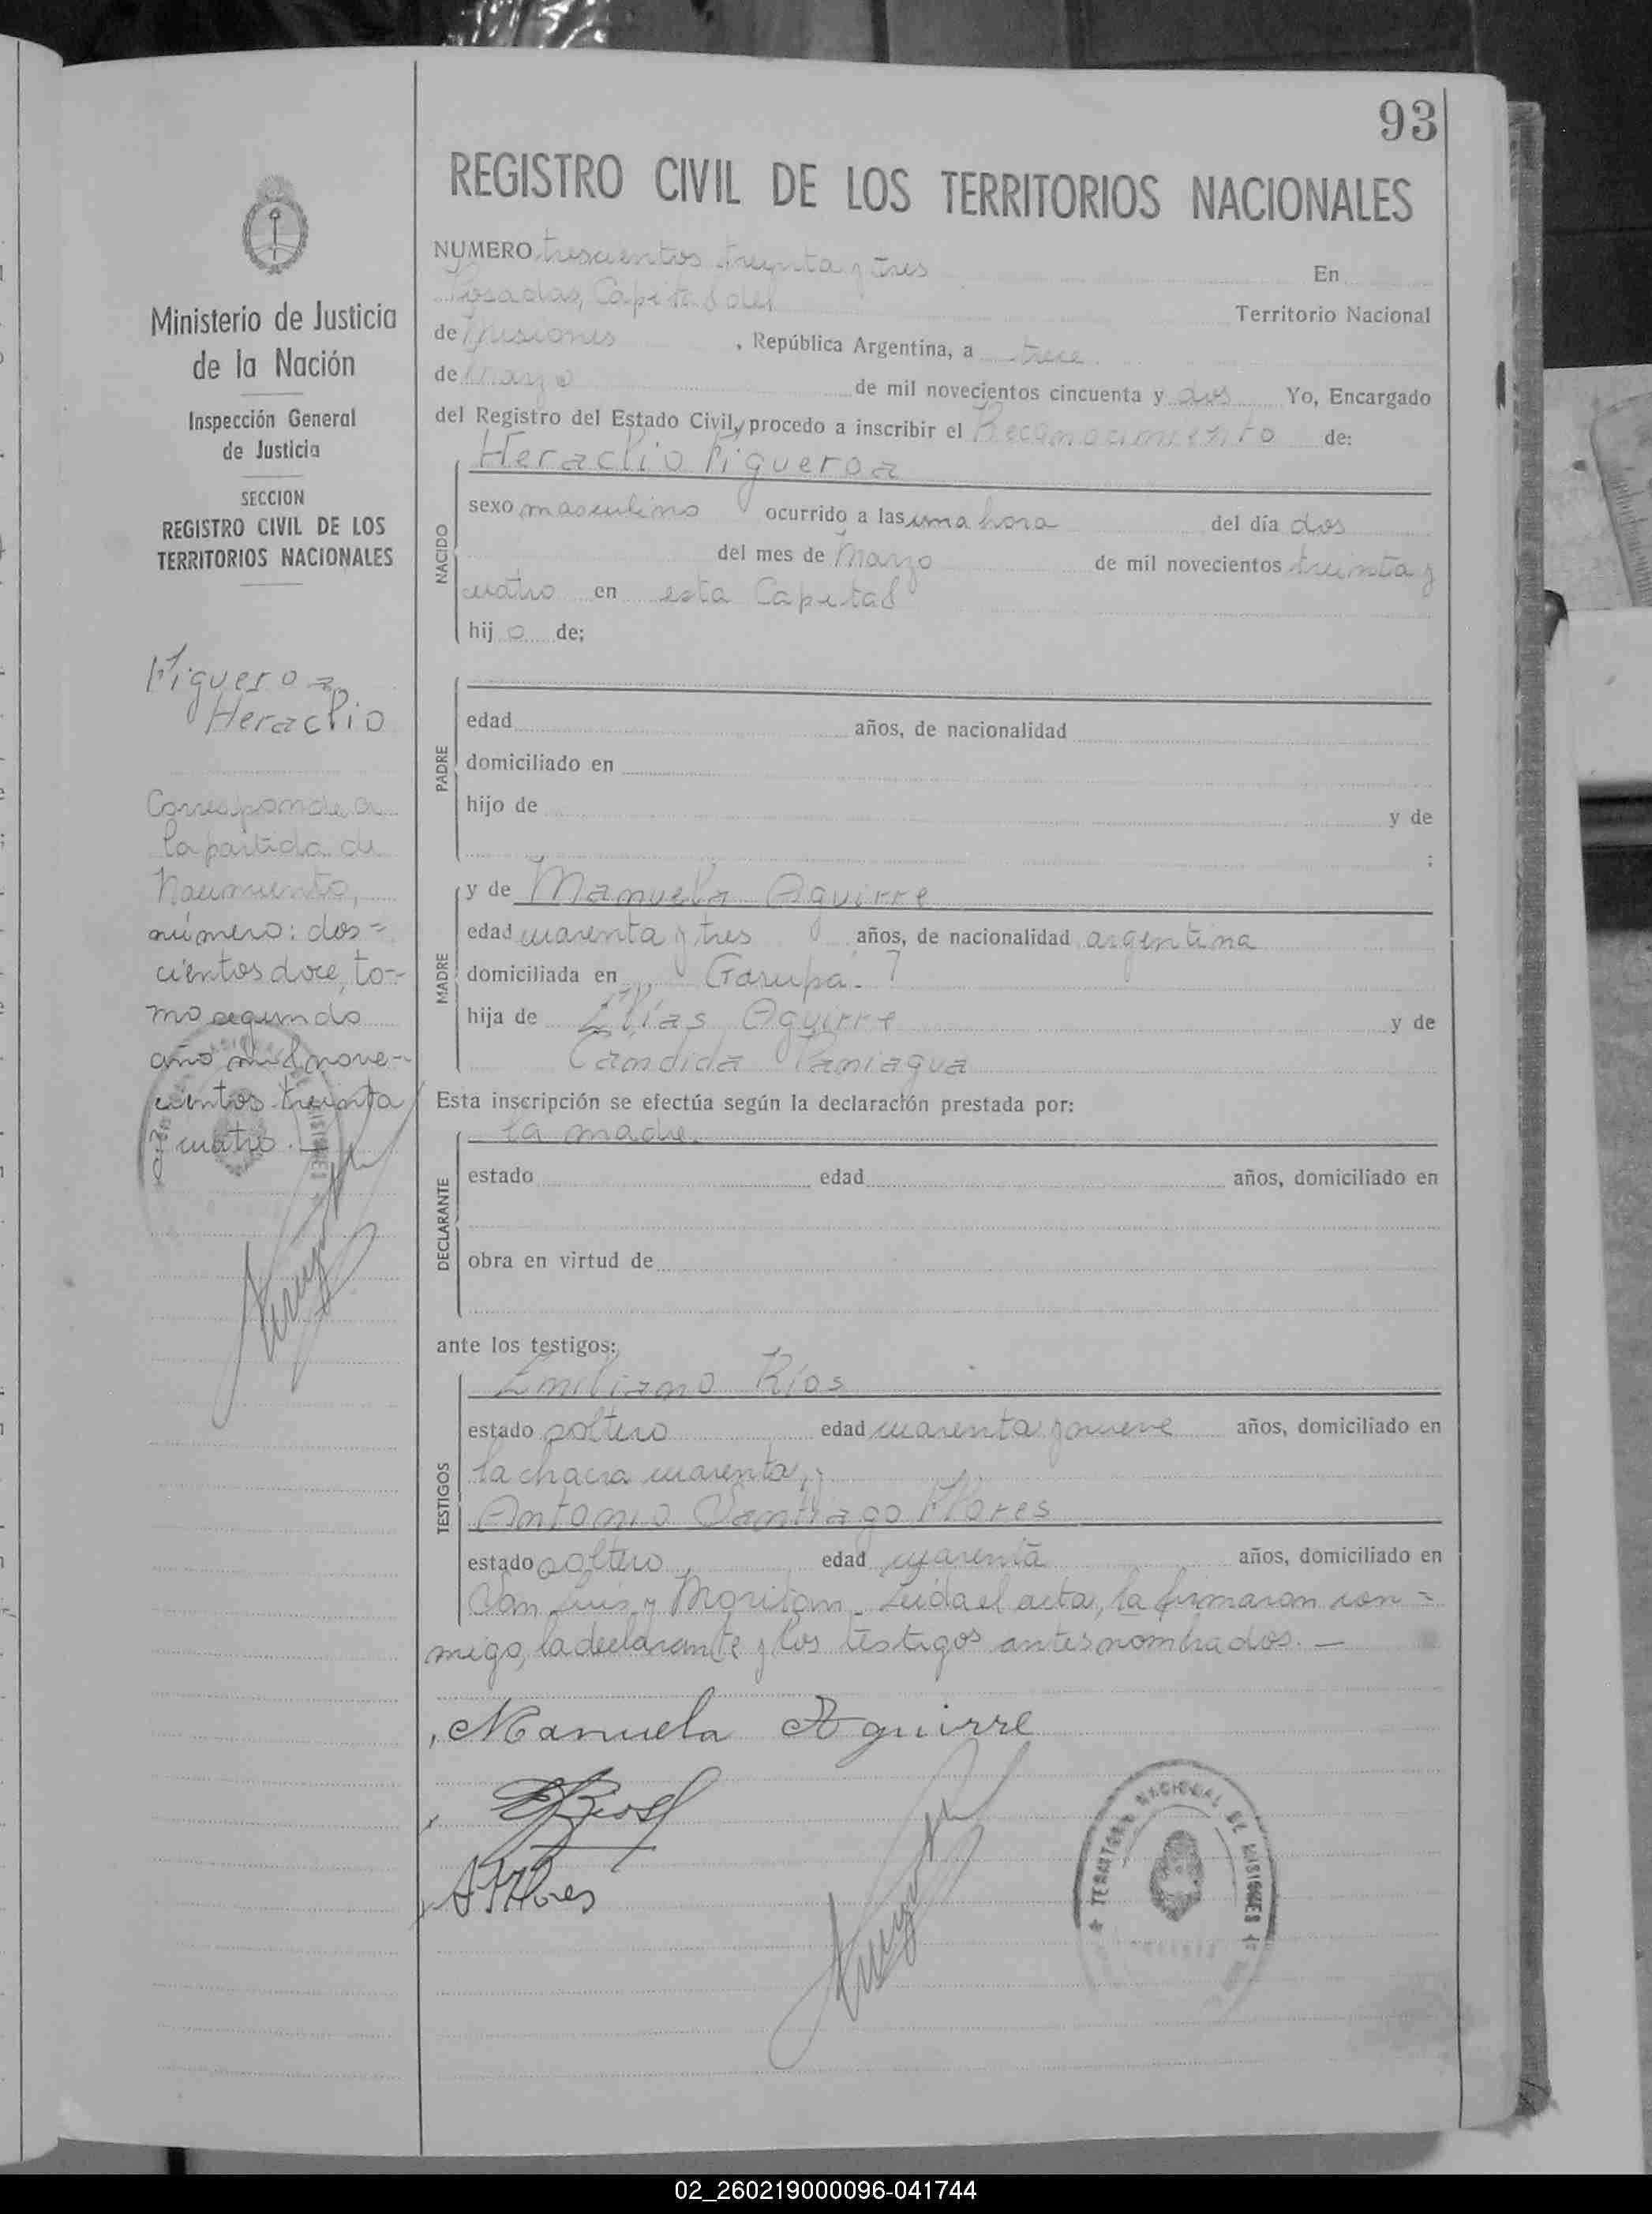 93
REGISTRO CIVIL DE LOS TERRITORIOS NACIONALES
Ministerio de Justicia
de la Nación
Inspección General
de Justicia
SECCION
REGISTRO CIVIL DE LOS
TERRITORIOS NACIONALES
Figueroa
Heraclio
Corresponde a
la partida de
Nacimiento,
número: dos=
cientos doce, to-
mo segundo
año mil nove-
cientos treinta
y cuatro.
NUMERO trescientos treinta y tres En
Posadas, Capital del Territorio Nacional
de Misiones , República Argentina, a trece
de Marzo de mil novecientos cincuenta y dos Yo, Encargado
del Registro del Estado Civil, procedo a inscribir el Reconocimiento de:
NACIDO
Heraclio Figueroa
sexo masculino ocurrido a las una hora del día dos
del mes de Marzo de mil novecientos treinta y
cuatro en esta Capital
hijo de;
PADRE
edad años, de nacionalidad
domiciliado en
hijo de y de
;
MADRE
y de Manuela Aguirre
edad cuarenta y tres años, de nacionalidad argentina
domiciliada en Garupá.
hija de Elías Aguirre y de
Cándida Paniagua
Esta inscripción se efectúa según la declaración prestada por:
DECLARANTE
la madre.
estado edad años, domiciliado en
obra en virtud de
ante los testigos:
TESTIGOS
Emiliano Ríos
estado soltero edad cuarenta y nueve años, domiciliado en
la chacra cuarenta, y
Antonio Santiago Flores
estado soltero, edad cuarenta años, domiciliado en
San Luis y Moritan. Leida el acta, la firmaron con=
migo, la declarante y los testigos antes nombrados. —
Manuela Aguirre
E Rios
A S Flores
TERRITORIO NACIONAL DE MISIONES
02_260219000096-041744